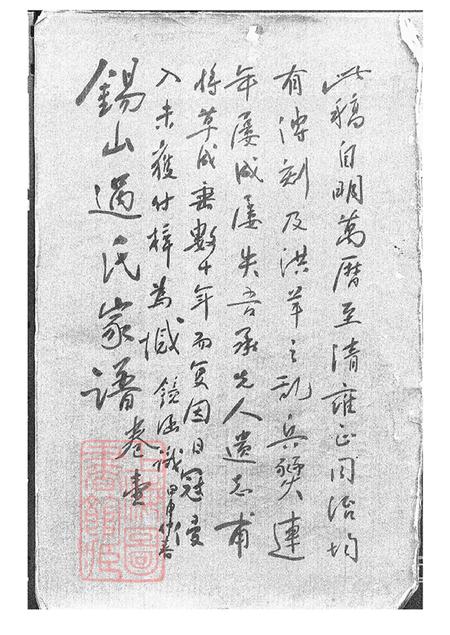 此稿自明萬曆至清雍正同治均
有傳刻及洪羊之亂兵燹連
年屡成屡失吾承先人遗志甫
将草成垂數十年而复因日冦侵
入未獲付梓為憾 鏡涵識 甲申仲春
錫山過氏家谱 卷壹